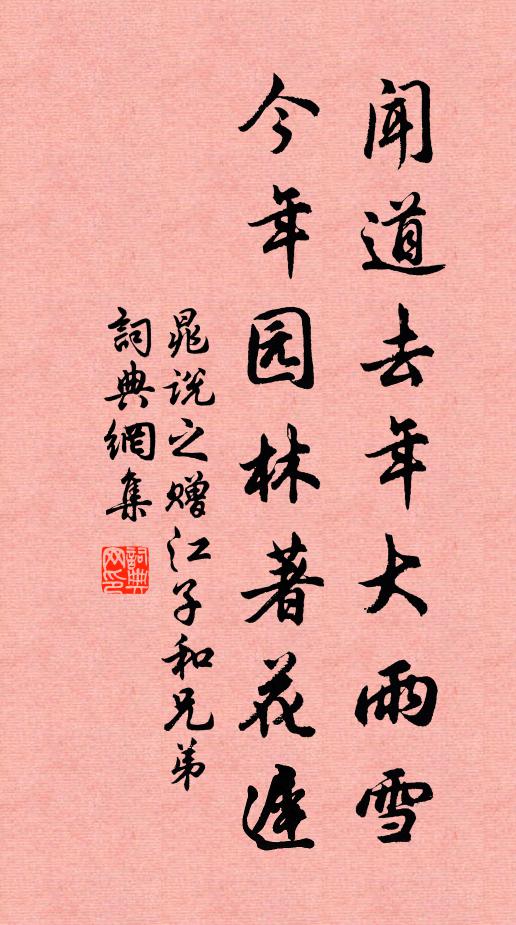 闻道去年大雨雪
今年园林著花遲
晁说之赠江子和兄弟
詞典網集
詞典网印